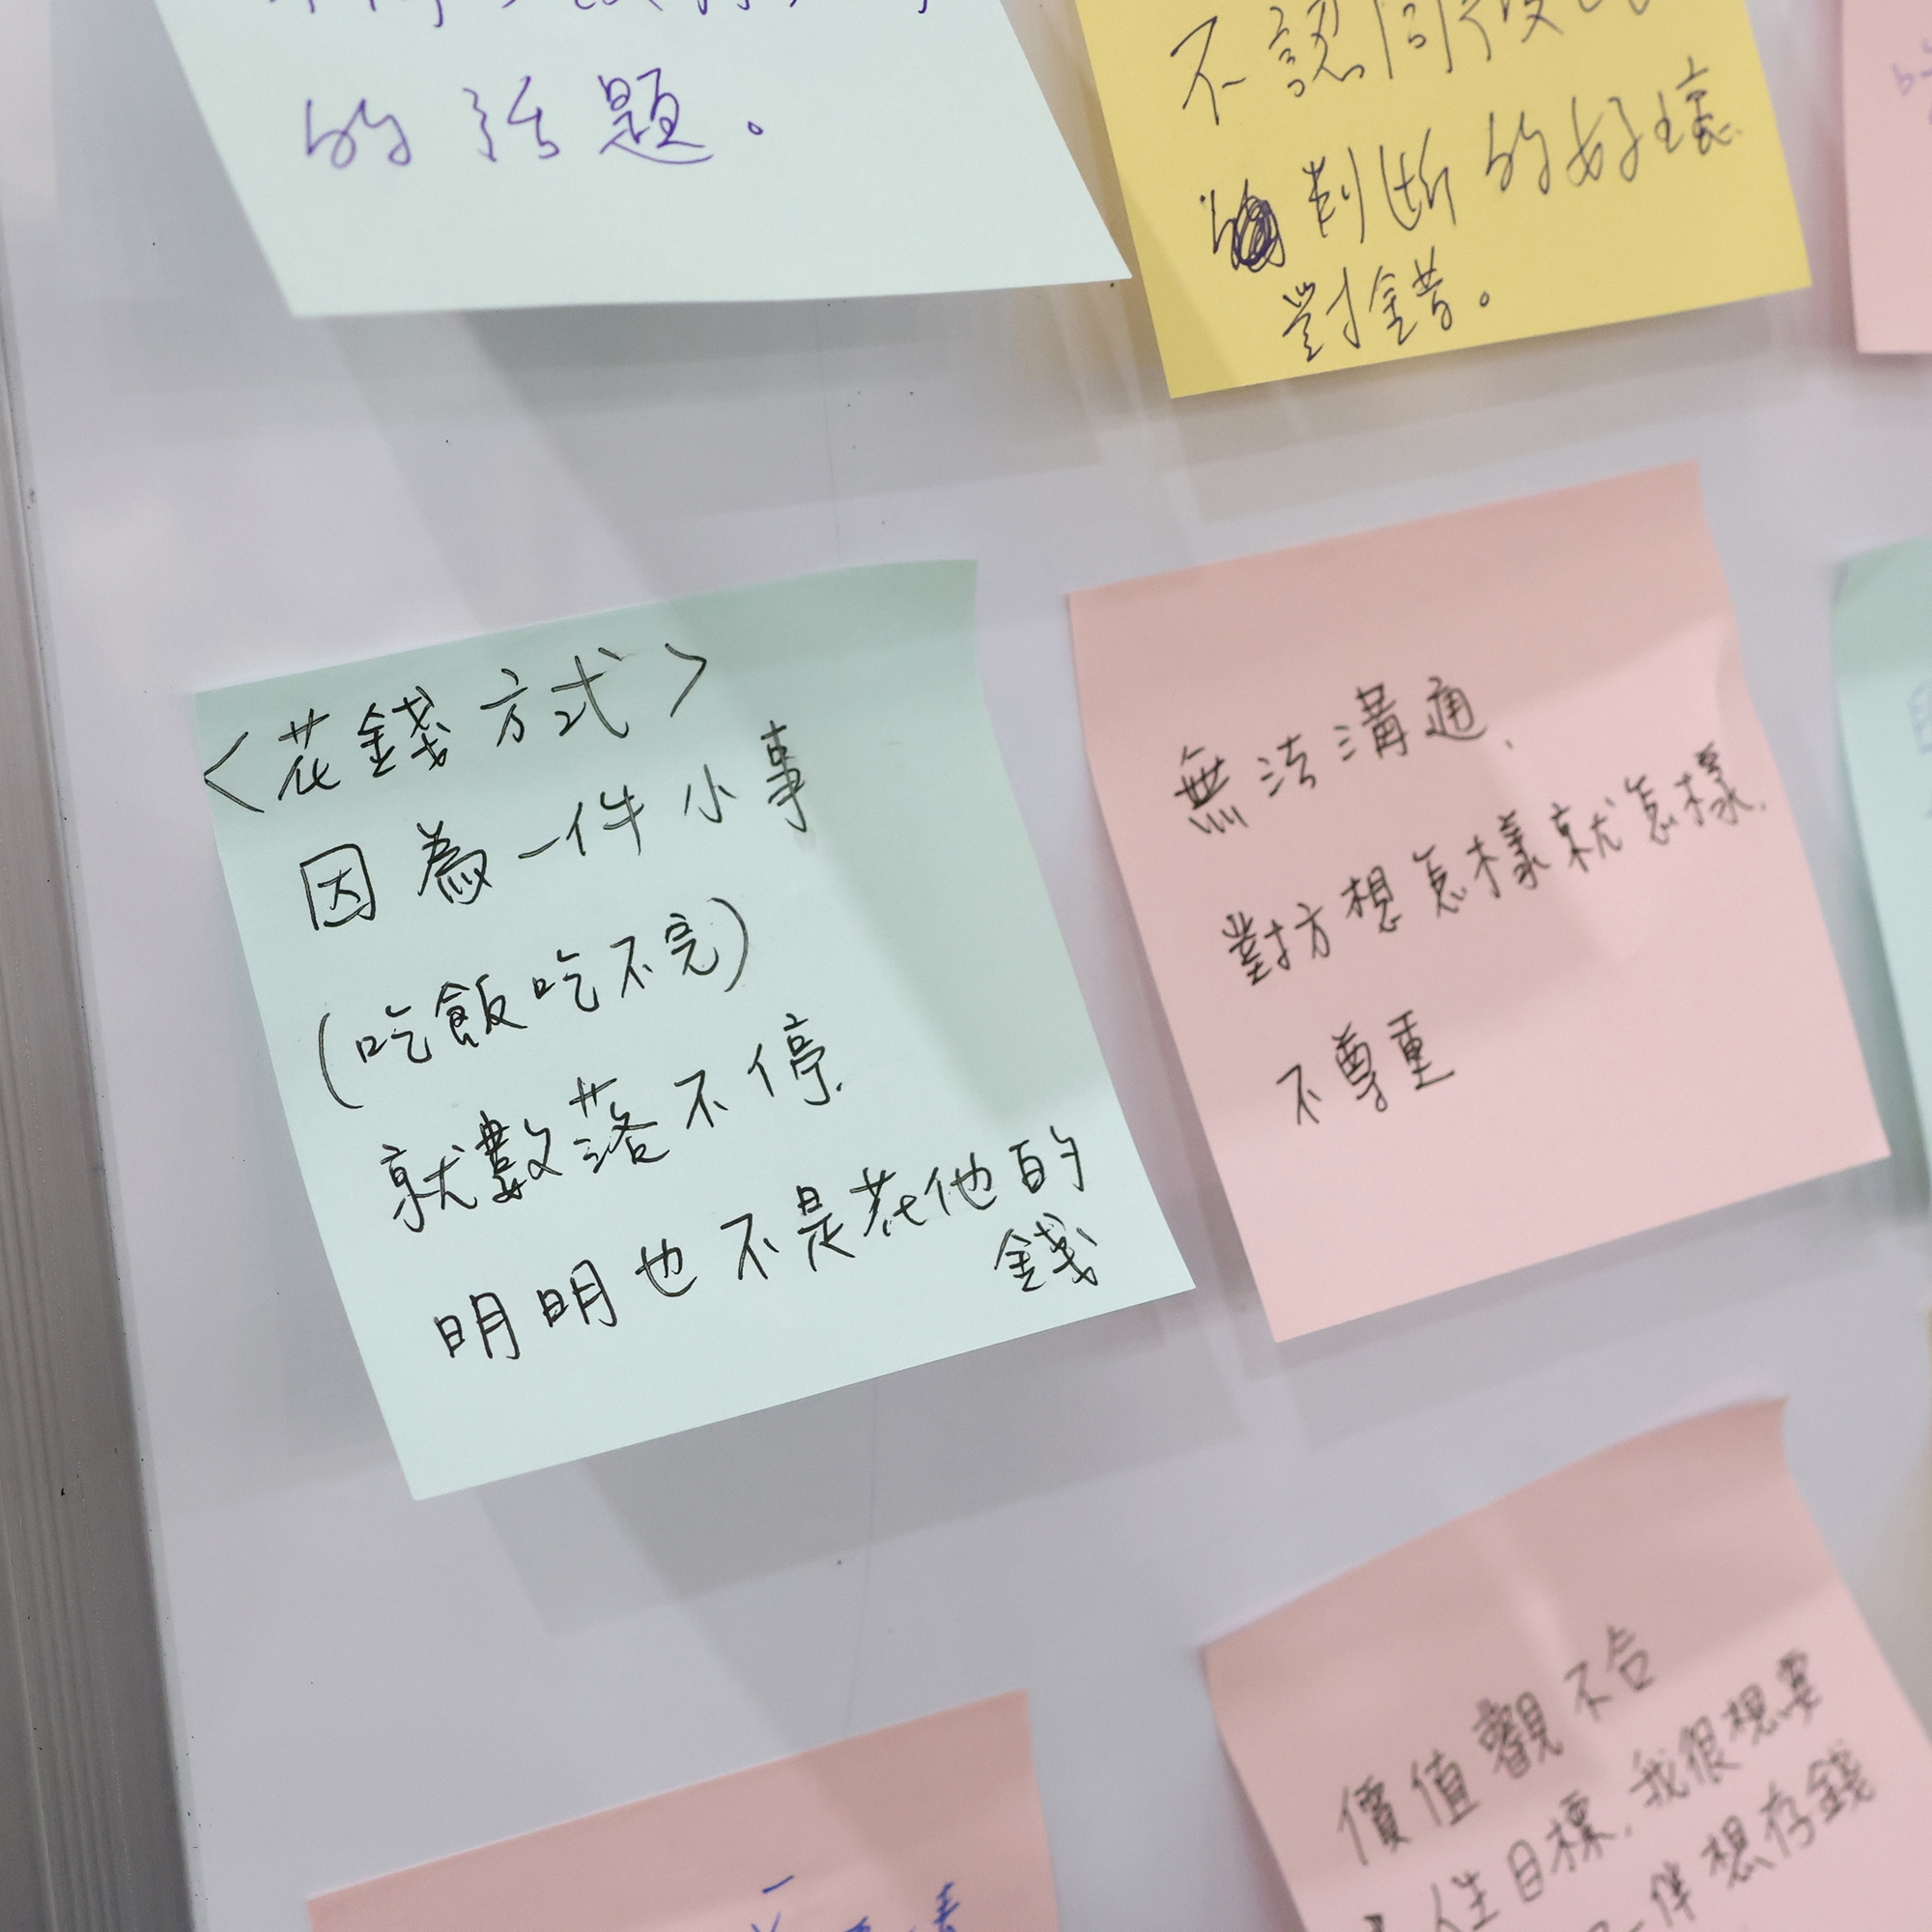 的話題。
不認同彼
判斷的好壞
對錯。
<花錢方式>
因為一件小事
(吃飯吃不完)
就數落不停.
明明也不是花他的
錢
無法溝通、
對方想怎樣就怎樣.
不尊重
價值觀不合
人生目標.我很想要
伴想存錢